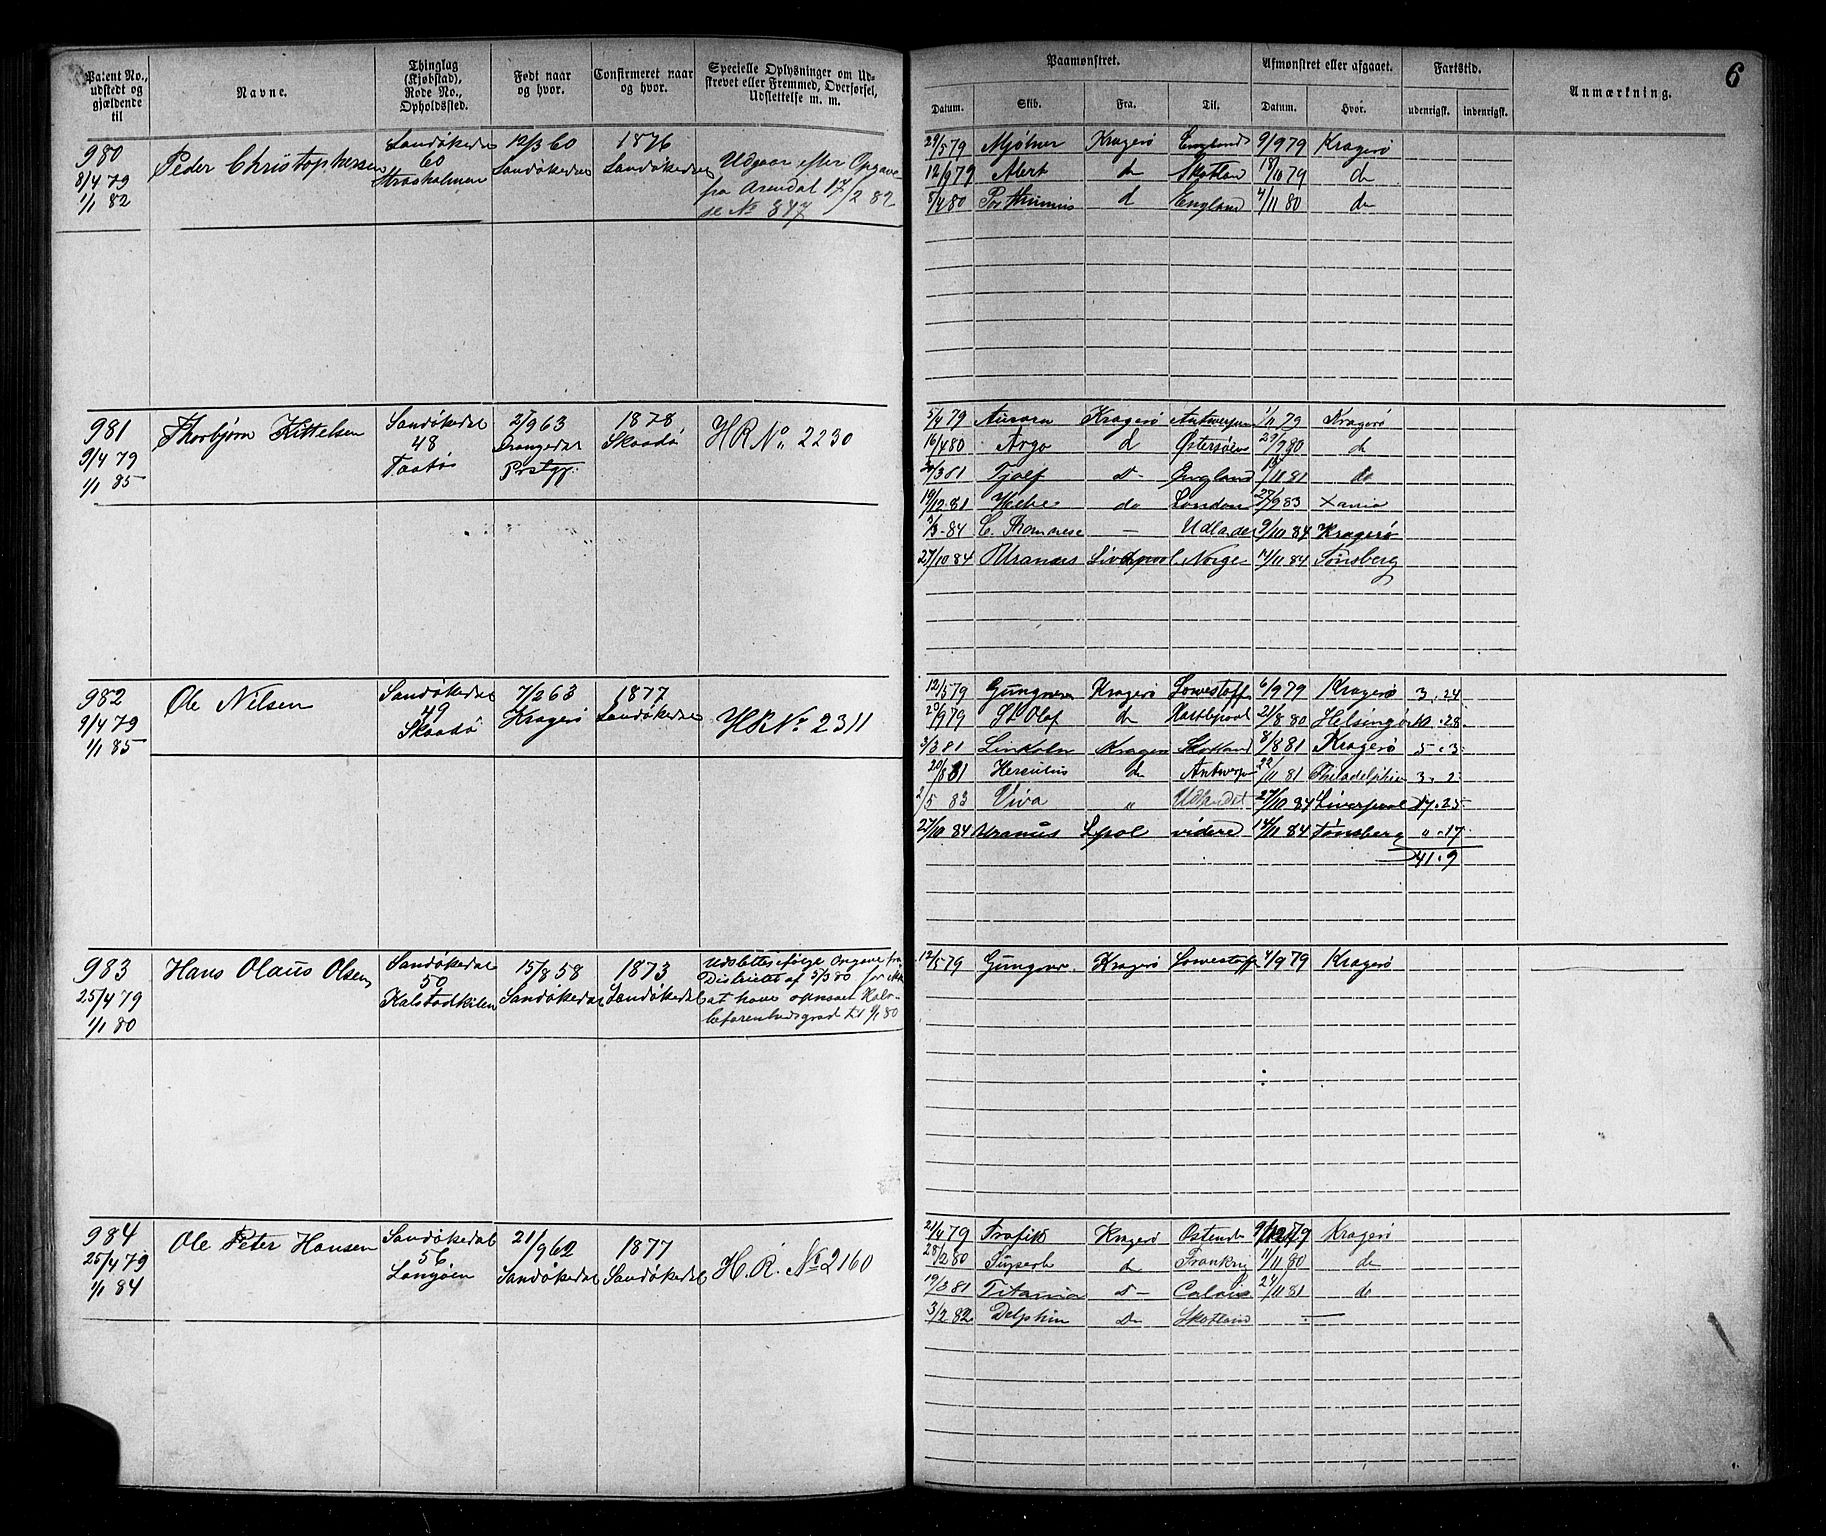 6
Patent No., udstedt og gjældende til
Navne.
Thinglag (Kjøbstad), Rode No., Opholdssted.
Født naar og hvor.
Confirmeret naar og hvor.
Specielle Oplysninger om Udskrevet eller Fremmed, Overførsel, Udslettelse m. m.
Paamønstret.
Afmønstret eller afgaaet.
Fartstid.
Anmærkning.
Datum. Skib. Fra. Til. Datum. Hvor. udenrigsk. indenrigsk.
980
8/4 79
1/1 82
Peder Christophersen
Sandøkedal
60
Straaholmen
12/3 60
Sandøkedal
1876
Sandøkedal
Udgaar efter Opgave
fra Arendal 17/2 82
se No 847
29/5 79 Mjølner Kragerø England 9/9 79 Kragerø
12/9 79 Alert do Skotland 18/11 79 do
5/4 80 d England 4/11 80 do
981
9/4 79
1/1 85
Thorbjørn Kittelsen
Sandøkedal
48
Taatøs
27/9 63
Drangedal
Prstgj.
1878
Skaadø
H R No. 2230
5/4 79 Aurora Kragerø Antwerpen 1/11 79 Kragerø
16/4 80 Argo d Østersøen 29/9 80 do
3 81 Fjalf d- England 11 81 do
19/12 81 Hebe do London 27/9 83 Xania
3/3 84 — Udlandet 9/10 84 Kragerø
27/10 84 Uranus Liverpool Norge 14/11 84 Tønsberg
982
9/4 79
1/1 85
Ole Nilsen
Sandøkedal
49
Skaadø
7/2 63
Kragerø
1877
Sandøkedal
H R No. 2311
12/5 79 Gungner Kragerø Lowestoff 6/9 79 Kragerø 3. 24
20/9 79 St Olaf do Hartlepool 21/8 80 Helsingør 10. 28
3/3 81 Linkoln Kragerø Skotland 8/8 81 Kragerø 5. 3
20/8 81 Herculus do Antwerpen 22/11 81 Philadelphia 3. 2
2/5 83 Viva " Udlandet 27/10 84 Liverpool 17. 25
27/10 84 Uranus Lpol videre 14/11 84 Tønsberg ". 17
41. 9
983
25/4 79
1/1 80
Hans Olaus Olsen
Sandøkedal
50
Kalstadkilen
15/8 58
Sandøkedal
1873
Sandøkedal
Udslettes ifølge Opgave fra
Distriktet af 5/3 80 for ikke
at have opnaaet Halv-
befarenhedsgrad til 1/1 80
12/5 79 Gungner Kragerø Lowestoff 4/9 79 Kragerø
984
25/4 79
1/1 84
Ole Peter Hansen
Sandøkedal
56
Langøen
21/9 62
Sandøkedal
1877
Sandøkedal
H. R. No 2160
21/4 79 Trafik Kragerø Ostende 9/12 79 Kragerø
28/2 80 Superb do Frankrig 11/11 80 do
19/3 81 Titania d- Calais 24/11 81 do
3/2 82 Delphin do Skotland —